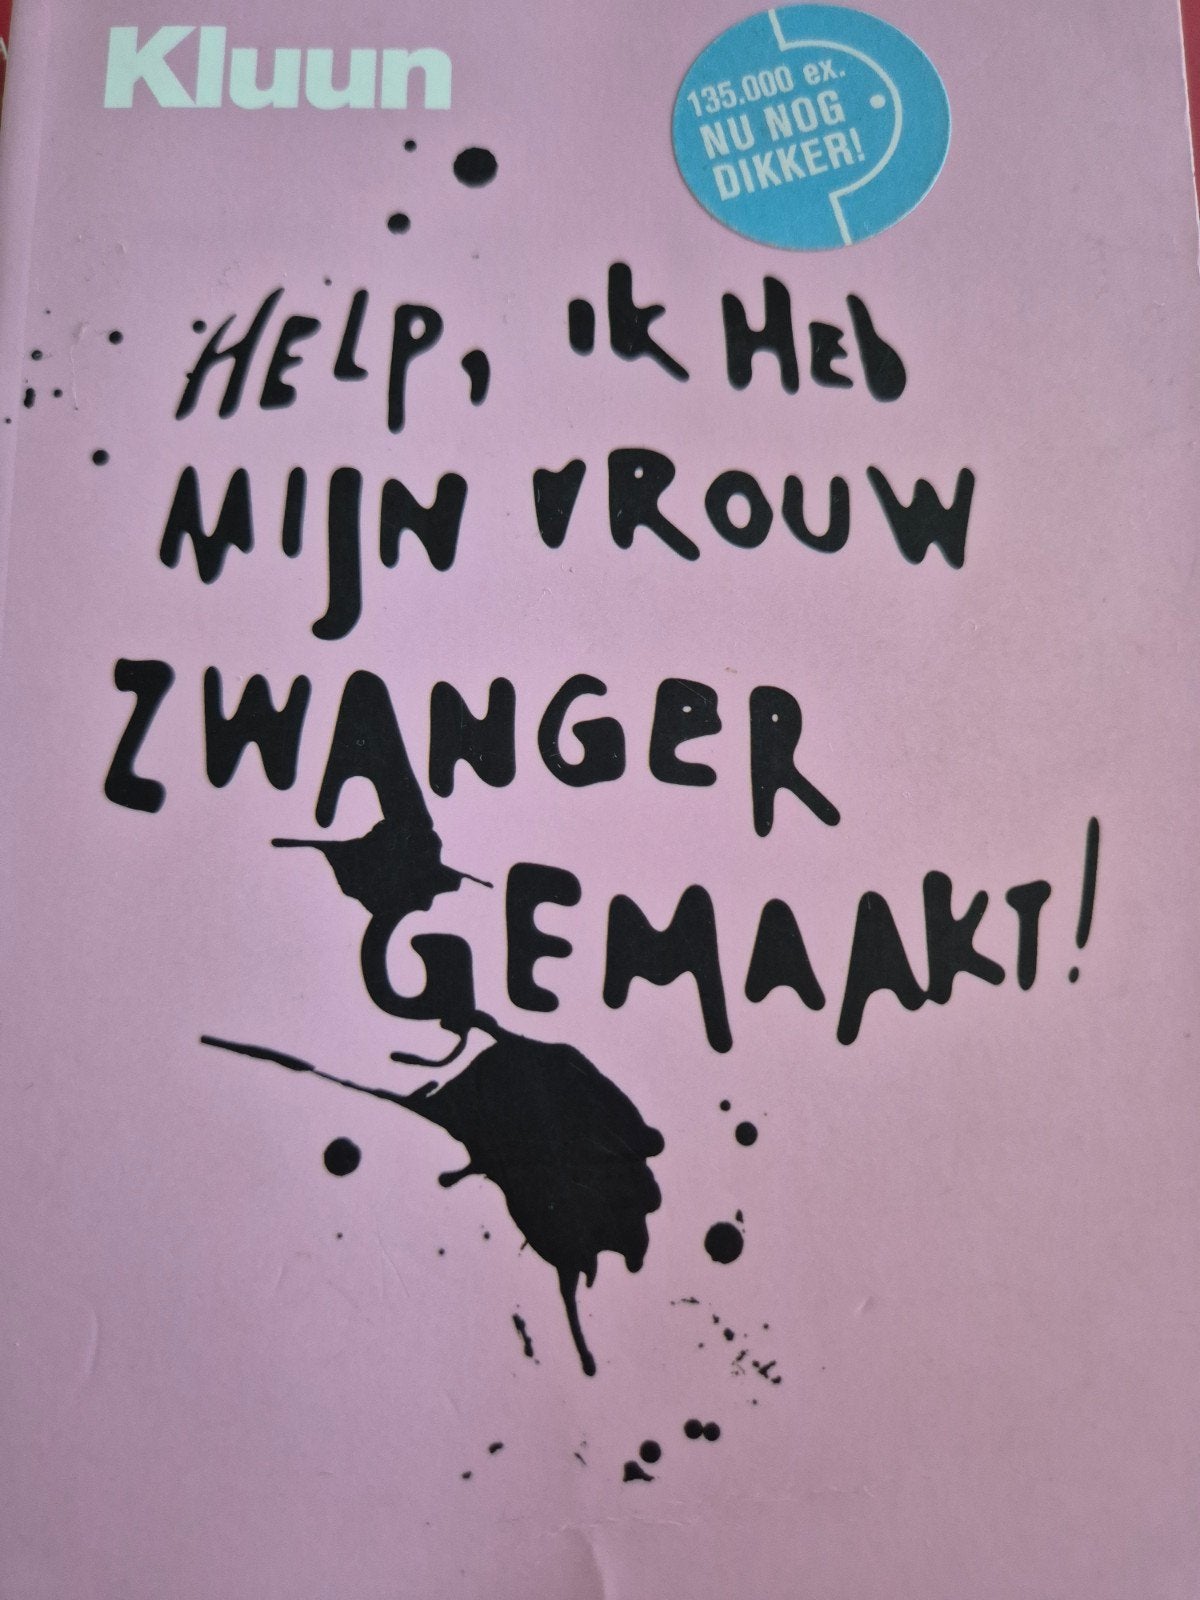 Kluun
135.000 ex.
NU NOG
DIKKER!
HELP, IK HEb
MIJN VROUW
ZWANGER
GEMAAKT!